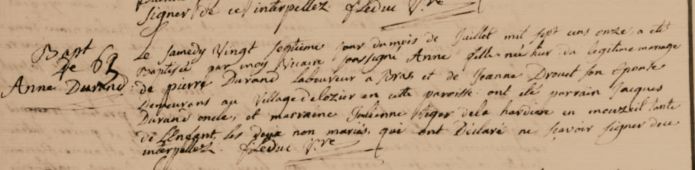 signer de ce interpellez fleduc Vre
Bapt
de 69
Anne Durand
Le samedy vingt septieme jour du mois de Juillet mil sept cens onze a eté
Baptisée par moy Vicaire soussigné Anne fille née hier du legitime mariage
de pierre Durand laboureur a Bras et de Jeanne Drouet son Epouse
Demeurans au village delozier en cette paroisse ont eté parrain Jacques
Durand oncle, et marraine Julienne Viger dela hardiere en mouzeil tante
de L'Enfant les deux non mariés, qui ont Déclaré ne sçavoir signer de ce
interpellez fleduc Vre